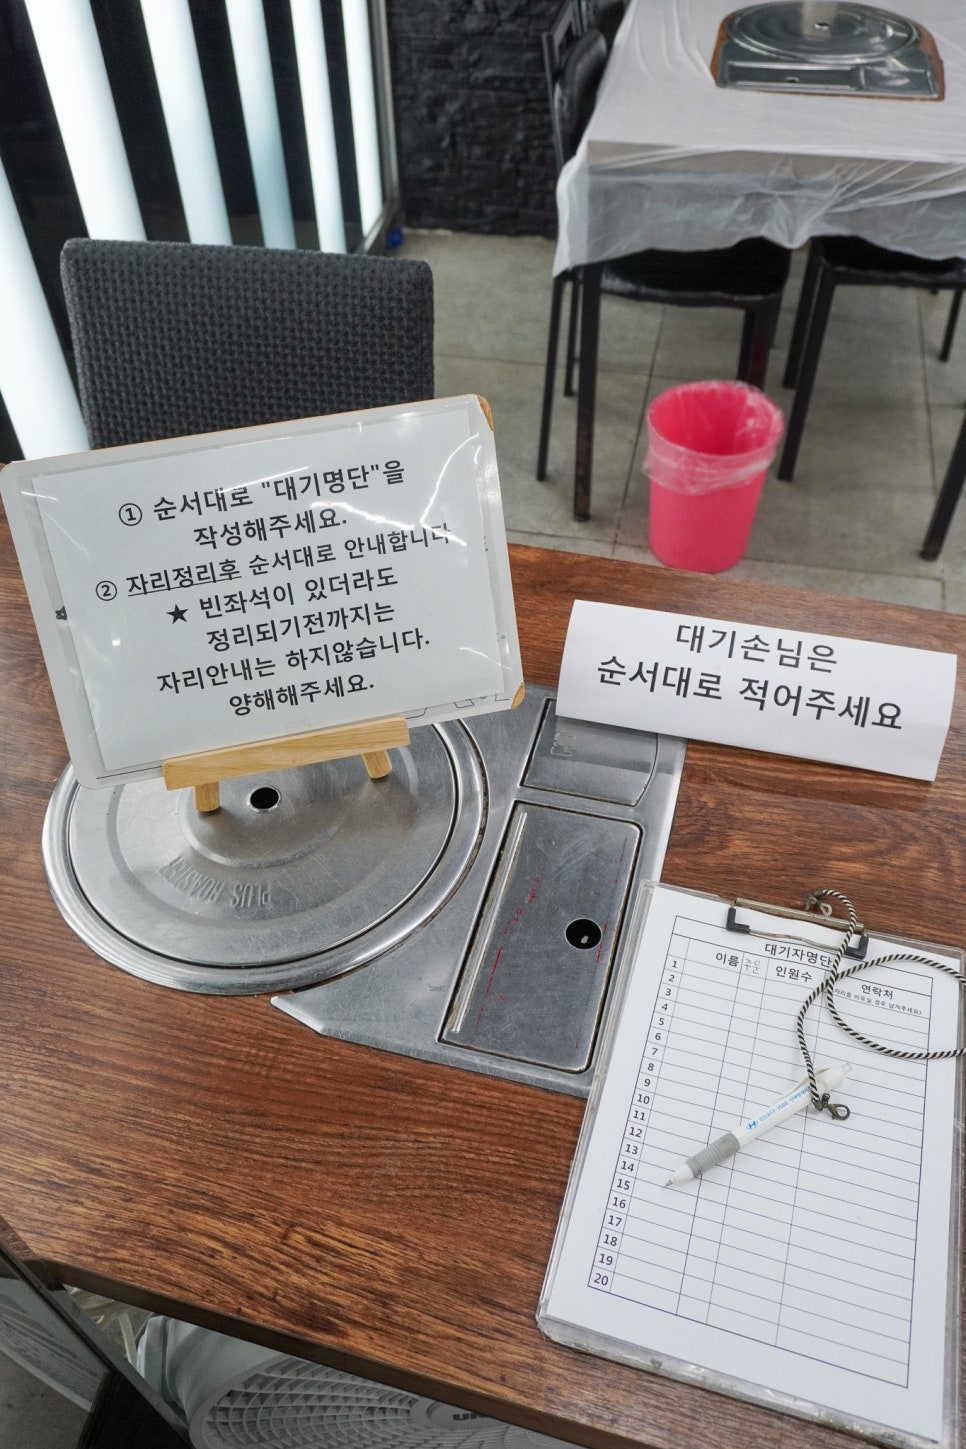 ① 순서대로 "대기명단"을
작성해주세요.
② 자리정리후 순서대로 안내합니다
★ 빈좌석이 있더라도
정리되기전까지는
자리안내는 하지않습니다.
양해해주세요.
대기손님은
순서대로 적어주세요
PLUS ROASTER
대기자명단
이름 인원수 연락처
1
2
3
4
5
6
7
8
9
10
11
12
13
14
15
16
17
18
19
20